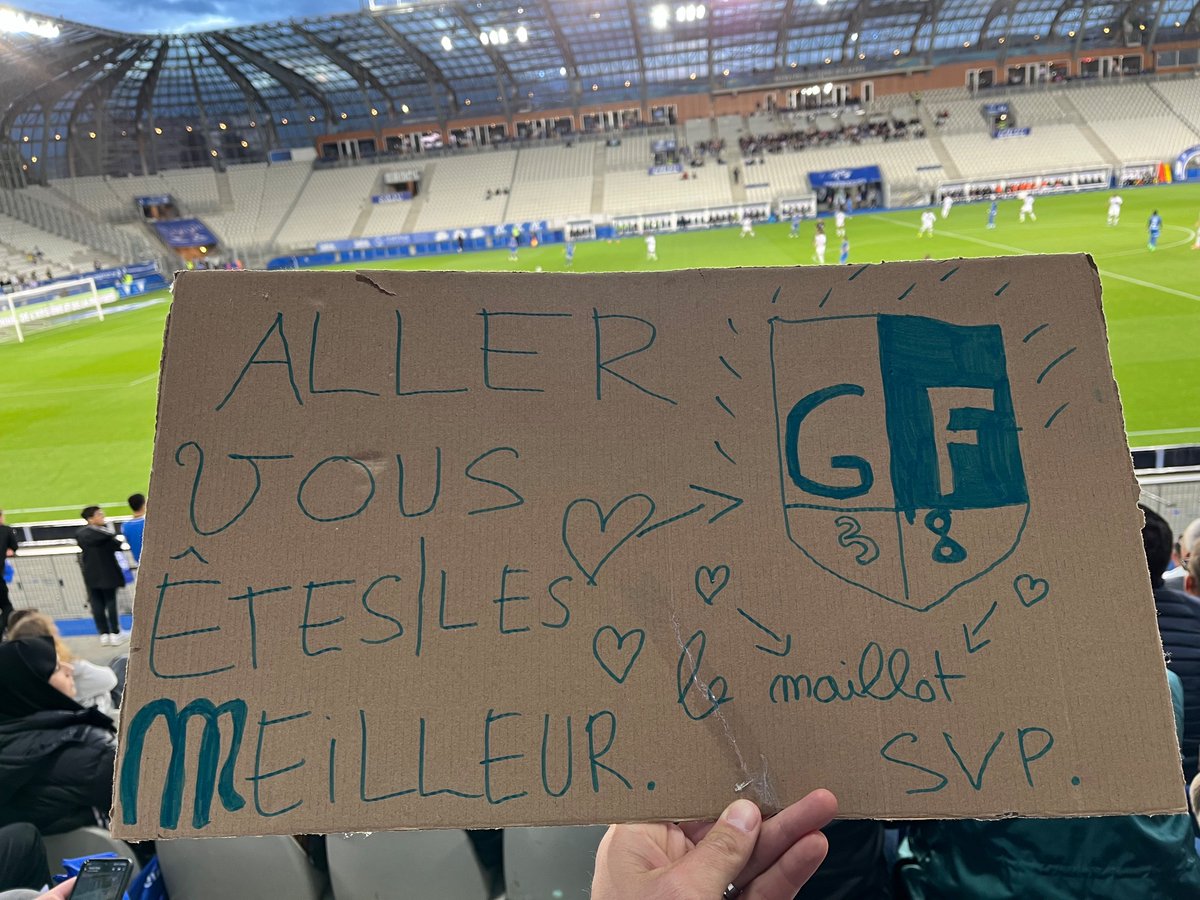 ALLER
VOUS
ÊTES LES
MEiLLEUR.
GF
38
le maillot
SVP.